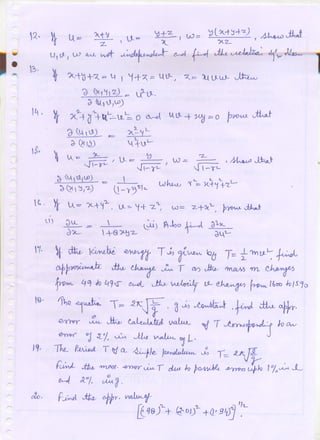 12. If u = x+y/z , v = y+z/x , w = y(x+y+z)/xz , show that
u, v, w are not independent and find the relation b/w them
13. If x+y+z = u , y+z = uv, z = uvw then
∂(x,y,z)/∂(u,v,w) = u²v.
14. If x²+y²+u²-v² = 0 and uv + xy = 0 prove that
∂(u,v)/∂(x,y) = x²-y²/u²+v²
15. If u = x/√1-r² , v = y/√1-r² , w = z/√1-r² , show that
∂(u,v,w)/∂(x,y,z) = 1/(1-r²)^5/2 where r² = x²+y²+z²
16. If u = x+y², v = y+z², w = z+x², prove that
(i) ∂u/∂x = 1/1+8xyz (ii) Also find ∂²x/∂u²
17. If the kinetic energy T is given by T = 1/2 mv², find
approximate the change in T as the mass m changes
from 49 to 49.5 and the velocity v changes from 1600 to 1590
18. The equation T = 2π√l/g . g is constant. find the appr.
error in the calculated value of T corresponding to an
error of 2% in the value of L.
19. The Period T of a simple pendulum is T = 2π√l/g
Find the max. error in T due to possible error upto 1% in l
and 2% in g.
20. Find the appr. value of
[(·98)² + (2·01)² + (1·94)²]^1/2.